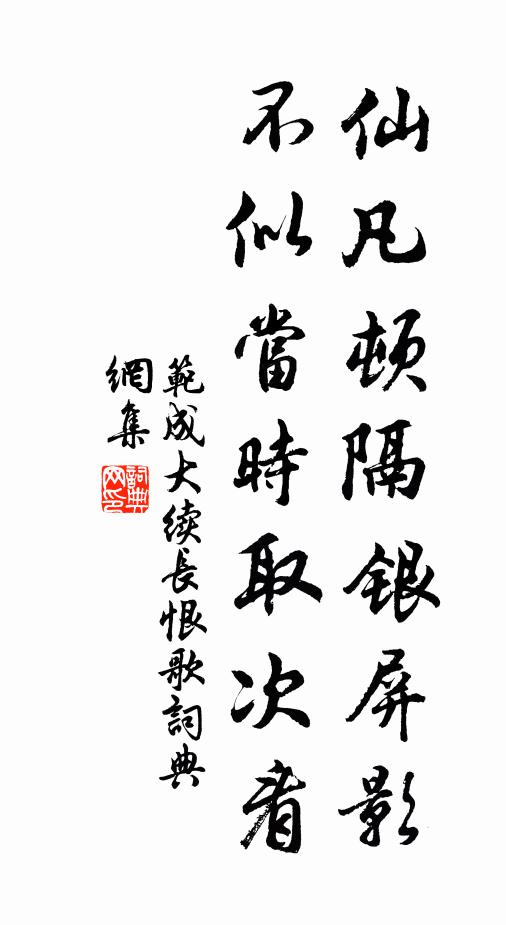 仙凡頓隔銀屏影
不似當時取次看
範成大续長恨歌詞典
網集
詞典網印